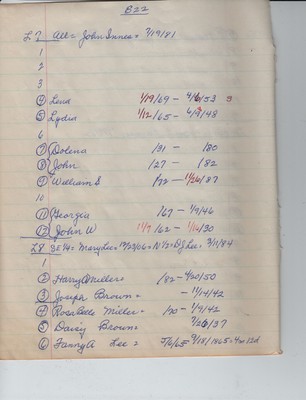 B22
L7 All = John Innes = 7/19/81
1
2
3
④ Lena 1/19/69 - 4/6/53
⑤ Lydia 1/12/65 - 4/9/48
6
⑦ Dolena /31 - /80
⑧ John /27 - /82
⑨ William S /72 - 11/26/87
10
⑪ Georgia /67 - 1/9/46
⑫ John W 11/7/62 - 1/16/30
L8 SE 1/4 = Mary Lee = 12/23/06 = N 1/2 = D J Lee = 3/11/84
1
② Harry A Miller = /82 - 4/20/50
③ Joseph Brown = - 11/14/42
④ Rosabelle Miller - /90 - 1/9/42
⑤ Daisy Brown = 7/26/37
⑥ Fanny A Lee = 5/6/65 - 9/18/1865 = 4m 12d